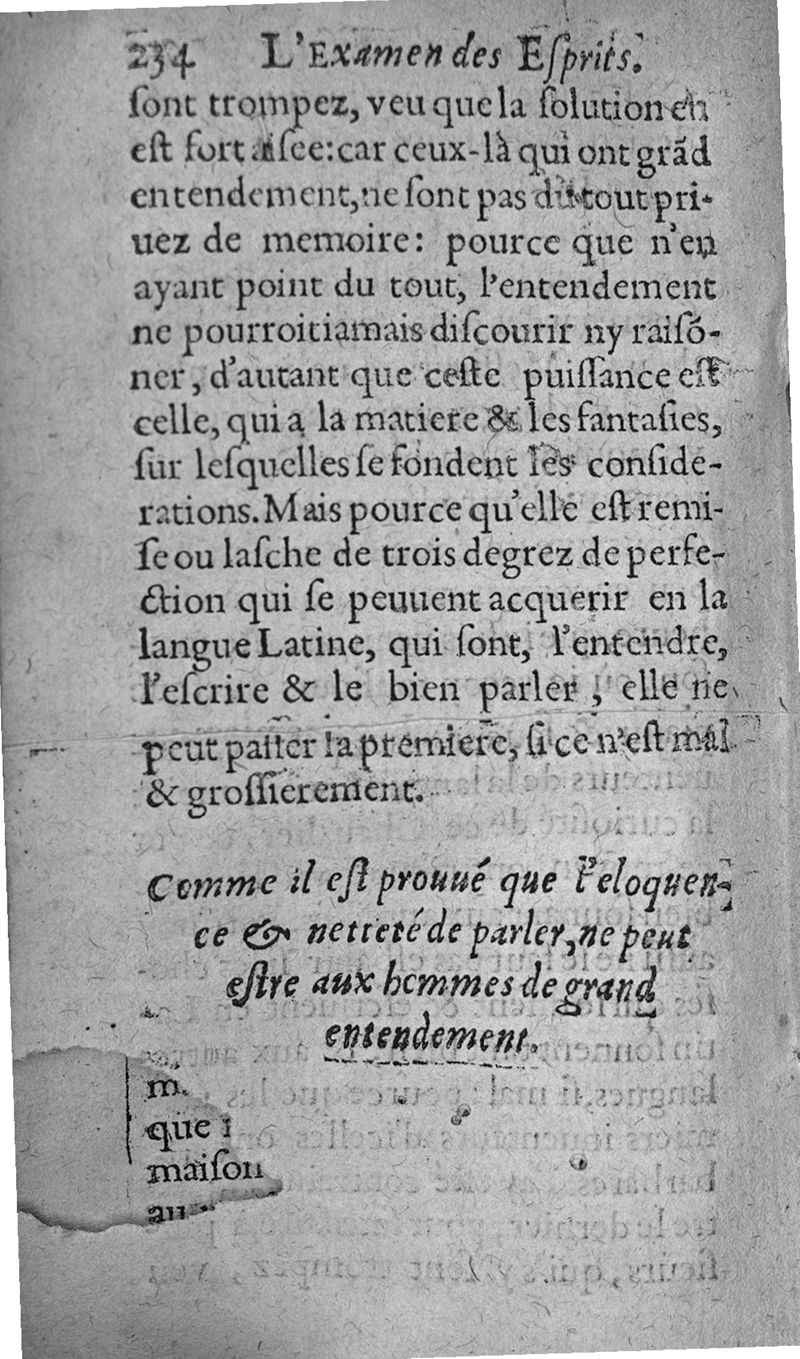 234 L'Examen des Eſprits.
ſont trompez, veu que la ſolution en
eſt fort aiſee: car ceux-là qui ont grãd
entendement, ne ſont pas du tout pri-
uez de memoire: pource que n'en
ayant point du tout, l'entendement
ne pourroit iamais diſcourir ny raiſõ-
ner, d'autant que ceſte puiſſance eſt
celle, qui a la matiere & les fantaſies,
ſur leſquelles ſe fondent les conſide-
rations. Mais pource qu'elle eſt remi-
ſe ou laſche de trois degrez de perfe-
ction qui ſe peuuent acquerir en la
langue Latine, qui ſont, l'entendre,
l'eſcrire & le bien parler, elle ne
peut paſſer la premiere, ſi ce n'eſt mal
& groſſierement.
Comme il eſt prouué que l'eloquen-
ce & netteté de parler, ne peut
eſtre aux hommes de grand
entendement.
m.
que
maiſon
au